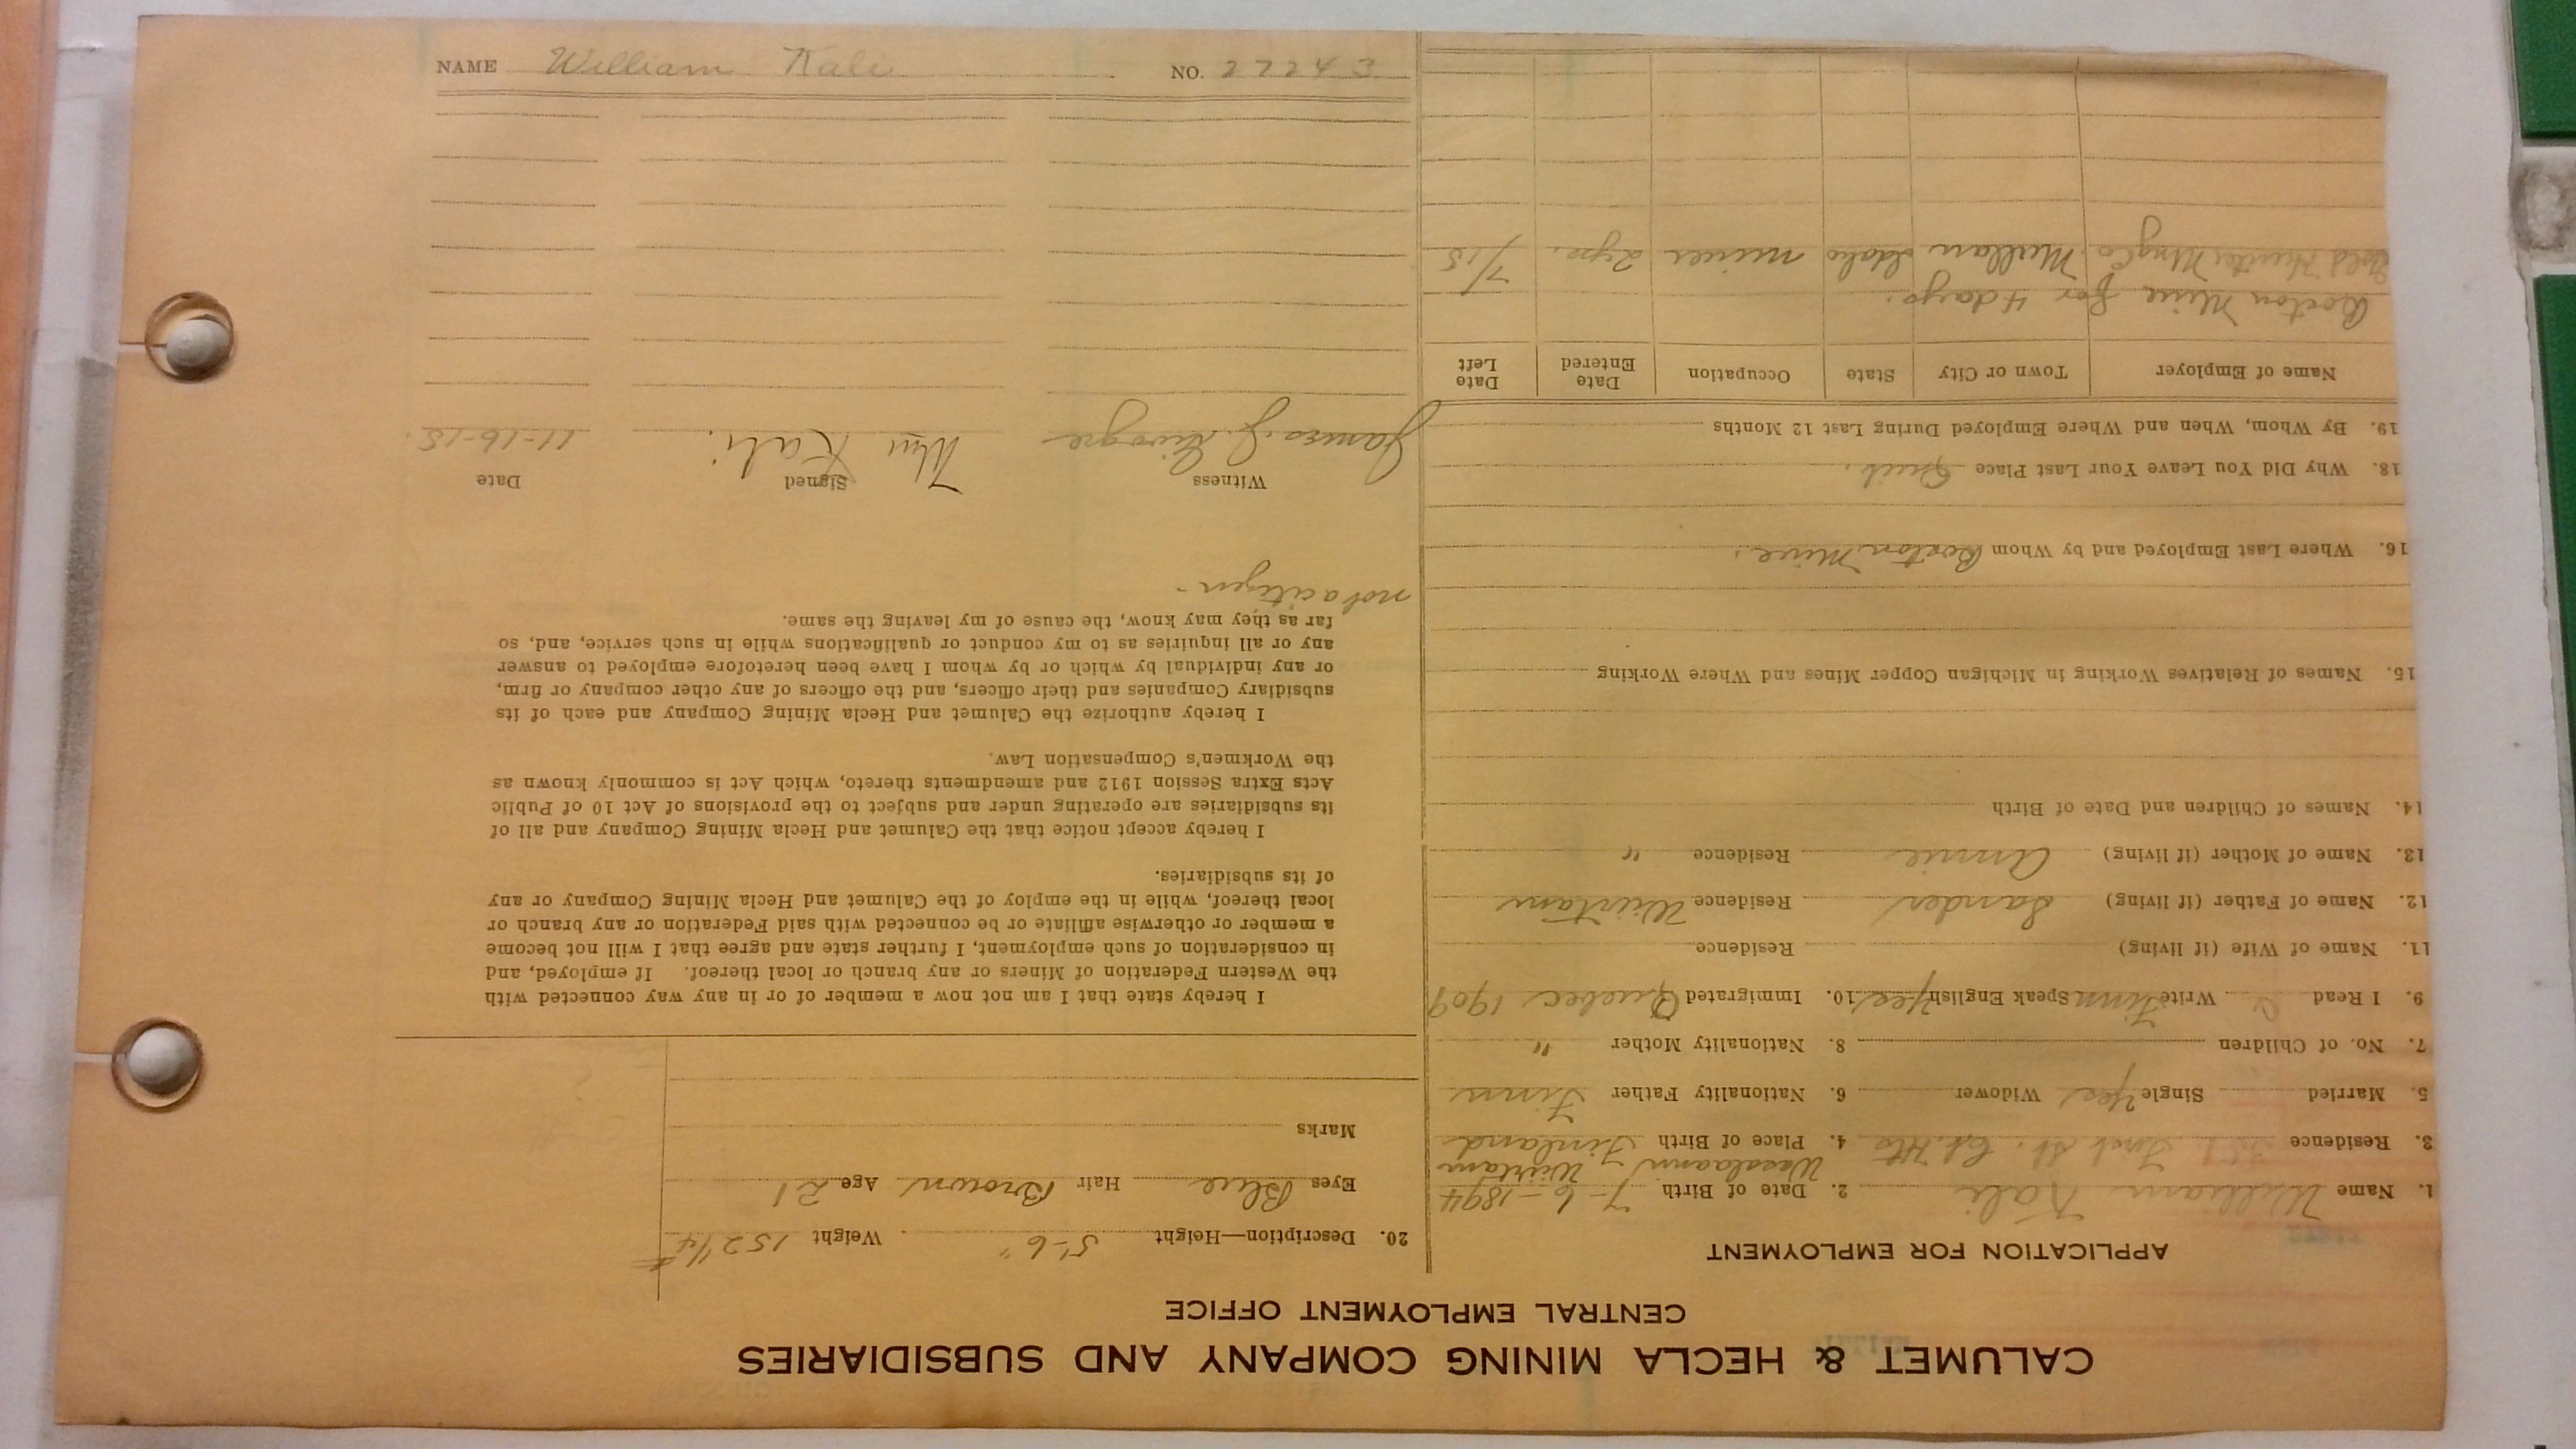 CALUMET & HECLA MINING COMPANY AND SUBSIDIARIES
CENTRAL EMPLOYMENT OFFICE
APPLICATION FOR EMPLOYMENT
1. Name William Kali 2. Date of Birth 7-6-1894
3. Residence St. 4. Place of Birth Finland
5. Married Single Yes Widower 6. Nationality Father Finn
7. No. of Children 8. Nationality Mother "
9. I Read Write Finn Speak English Yes 10. Immigrated Quebec 1909
11. Name of Wife (if living) Residence
12. Name of Father (if living) Sander Residence
13. Name of Mother (if living) Annie Residence "
14. Names of Children and Date of Birth
15. Names of Relatives Working in Michigan Copper Mines and Where Working
16. Where Last Employed and by Whom Mine.
18. Why Did You Leave Your Last Place Quit.
19. By Whom, When and Where Employed During Last 12 Months
Name of Employer Town or City State Occupation Date Entered Date Left
Mine for 4 days.
Gold Hunter Mng Co. Mullan Idaho miner 2 yrs. 7/15
20. Description—Height 5'-6" Weight 152 1/4 #
Eyes Blue Hair Brown Age 21
Marks
I hereby state that I am not now a member of or in any way connected with
the Western Federation of Miners or any branch or local thereof. If employed, and
in consideration of such employment, I further state and agree that I will not become
a member or otherwise affiliate or be connected with said Federation or any branch or
local thereof, while in the employ of the Calumet and Hecla Mining Company or any
of its subsidiaries.
I hereby accept notice that the Calumet and Hecla Mining Company and all of
its subsidiaries are operating under and subject to the provisions of Act 10 of Public
Acts Extra Session 1912 and amendments thereto, which Act is commonly known as
the Workmen's Compensation Law.
I hereby authorize the Calumet and Hecla Mining Company and each of its
subsidiary Companies and their officers, and the officers of any other company or firm,
or any individual by which or by whom I have been heretofore employed to answer
any or all inquiries as to my conduct or qualifications while in such service, and, so
far as they may know, the cause of my leaving the same.
not a citizen -
Witness Signed Date
James J. Wm Kali. 11-16-15.
NAME William Kali NO. 22243